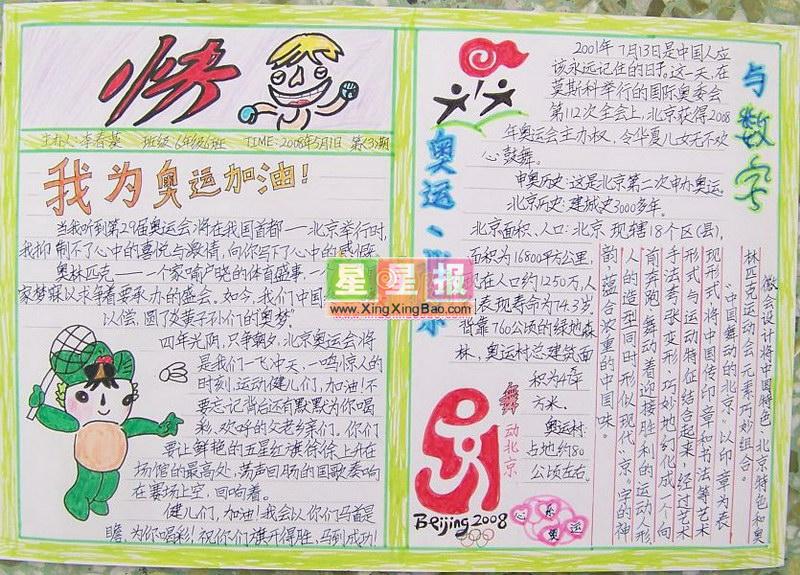 快
主办人:李春英 班级:6年级6班 TIME:2008年5月1日 第(3)期
我为奥运加油!
当我听到第29届奥运会将在我国首都——北京举行时,
我抑制不了心中的喜悦与激情,向你写下了心中的感慨。
奥林匹克——一个家喻户晓的体育盛事
家梦寐以求争着要承办的盛会。如今,我们中国
以偿,圆了炎黄子孙们的奥梦。
四年光阴,只争朝夕,北京奥运会将
是我们一飞冲天,一鸣惊人的
时刻,运动健儿们,加油!不
要忘记背后还有默默为你喝
彩,欢呼的父老乡亲们。你们
要让鲜艳的五星红旗徐徐上升在
场馆的最高处,荡声回肠的国歌奏响
在赛场上空,回响着。
健儿们,加油!我会以你们马首是
瞻,为你喝彩!祝你们旗开得胜,马到成功!
星星报
www.XingXingBao.com
奥运、
与数字
2001年7月13日是中国人应
该永远记住的日子。这一天,在
莫斯科举行的国际奥委会
第112次全会上,北京获得2008
年奥运会主办权,令华夏儿女无不欢
心鼓舞。
申奥历史:这是北京第二次申办奥运。
北京历史:建城史3000多年。
北京面积、人口:北京现辖18个区(县),
面积为16800平方公里,
现在人口约1250万,人
表现寿命为74.3岁,
背靠760公顷的绿地森
林,奥运村总建筑面
积为47平
方米。
奥运村
占地约80
公顷左右。
舞动北京
Beijing 2008
心系奥运
徽会设计将中国特色、北京特色和奥
林匹克运动会元素巧妙组合。
"中国舞动的北京"以印章为表
现形式将中国传印章和书法等艺术
形式与运动特征结合起来,经过艺术
手法夸张变形,巧妙地幻化成一个向
前奔跑,舞动着迎接胜利的运动人形
人的造型同时形似现代"京"字的神
韵,蕴含浓重的中国味。